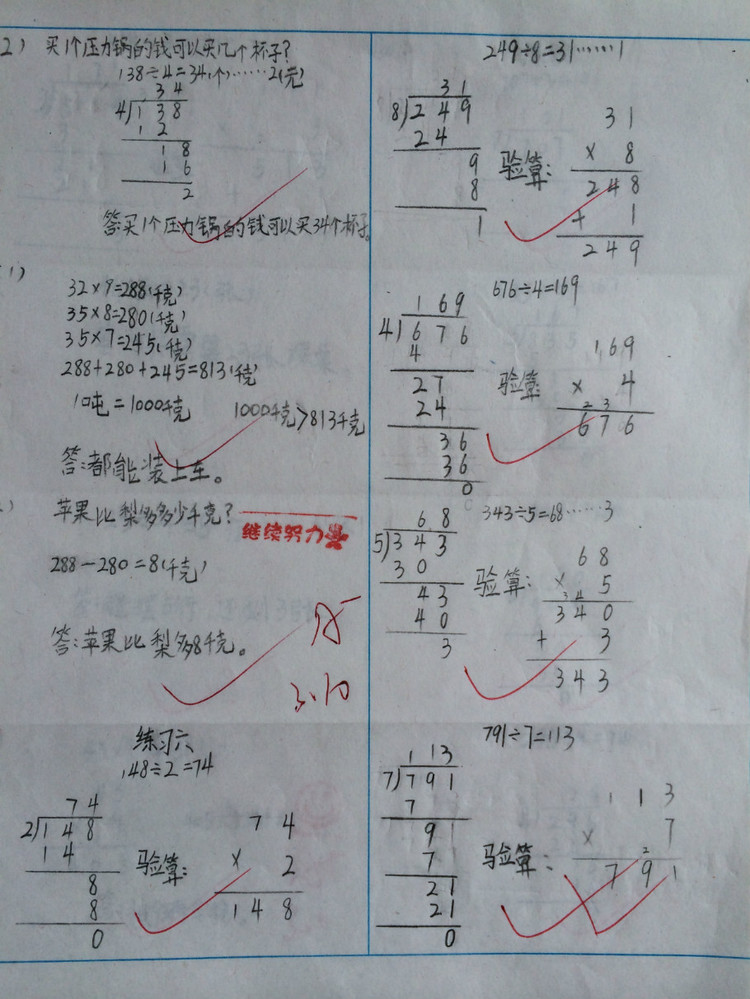 2) 买1个压力锅的钱可以买几个杯子?
138÷4=34(个)……2(元)
34
4)138
12
18
16
2
答:买1个压力锅的钱可以买34个杯子。
1)
32×9=288(千克)
35×8=280(千克)
35×7=245(千克)
288+280+245=813(千克)
1吨=1000千克 1000千克>813千克
答:都能装上车。
苹果比梨多多少千克?
继续努力
288-280=8(千克)
答:苹果比梨多8千克。
3.10
练习六
148÷2=74
74
2)148
14
8
8
0
验算:
74
×2
148
249÷8=31……1
31
8)249
24
9
8
1
验算:
31
×8
248
+1
249
676÷4=169
169
4)676
4
27
24
36
36
0
验算:
169
×4
23
676
343÷5=68……3
68
5)343
30
43
40
3
验算:
68
×5
34
340
+3
343
791÷7=113
113
7)791
7
91
7
21
21
0
验算:
113
×7
2
791